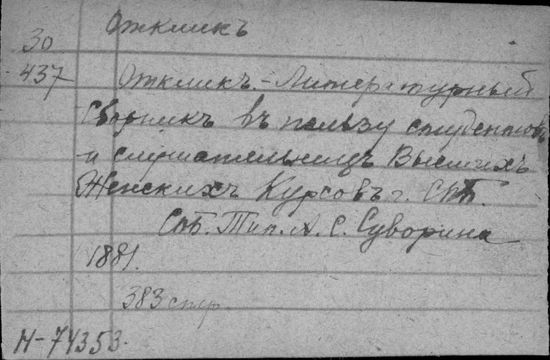 Откликъ
30
437
Откликъ. - Литературный
Сборникъ въ пользу студентовъ
и слушательницъ Высшихъ
Женскихъ Курсовъ г. СПБ.
Спб. Тип. А. С. Суворина
1881.
383 стр.
Н-74353.